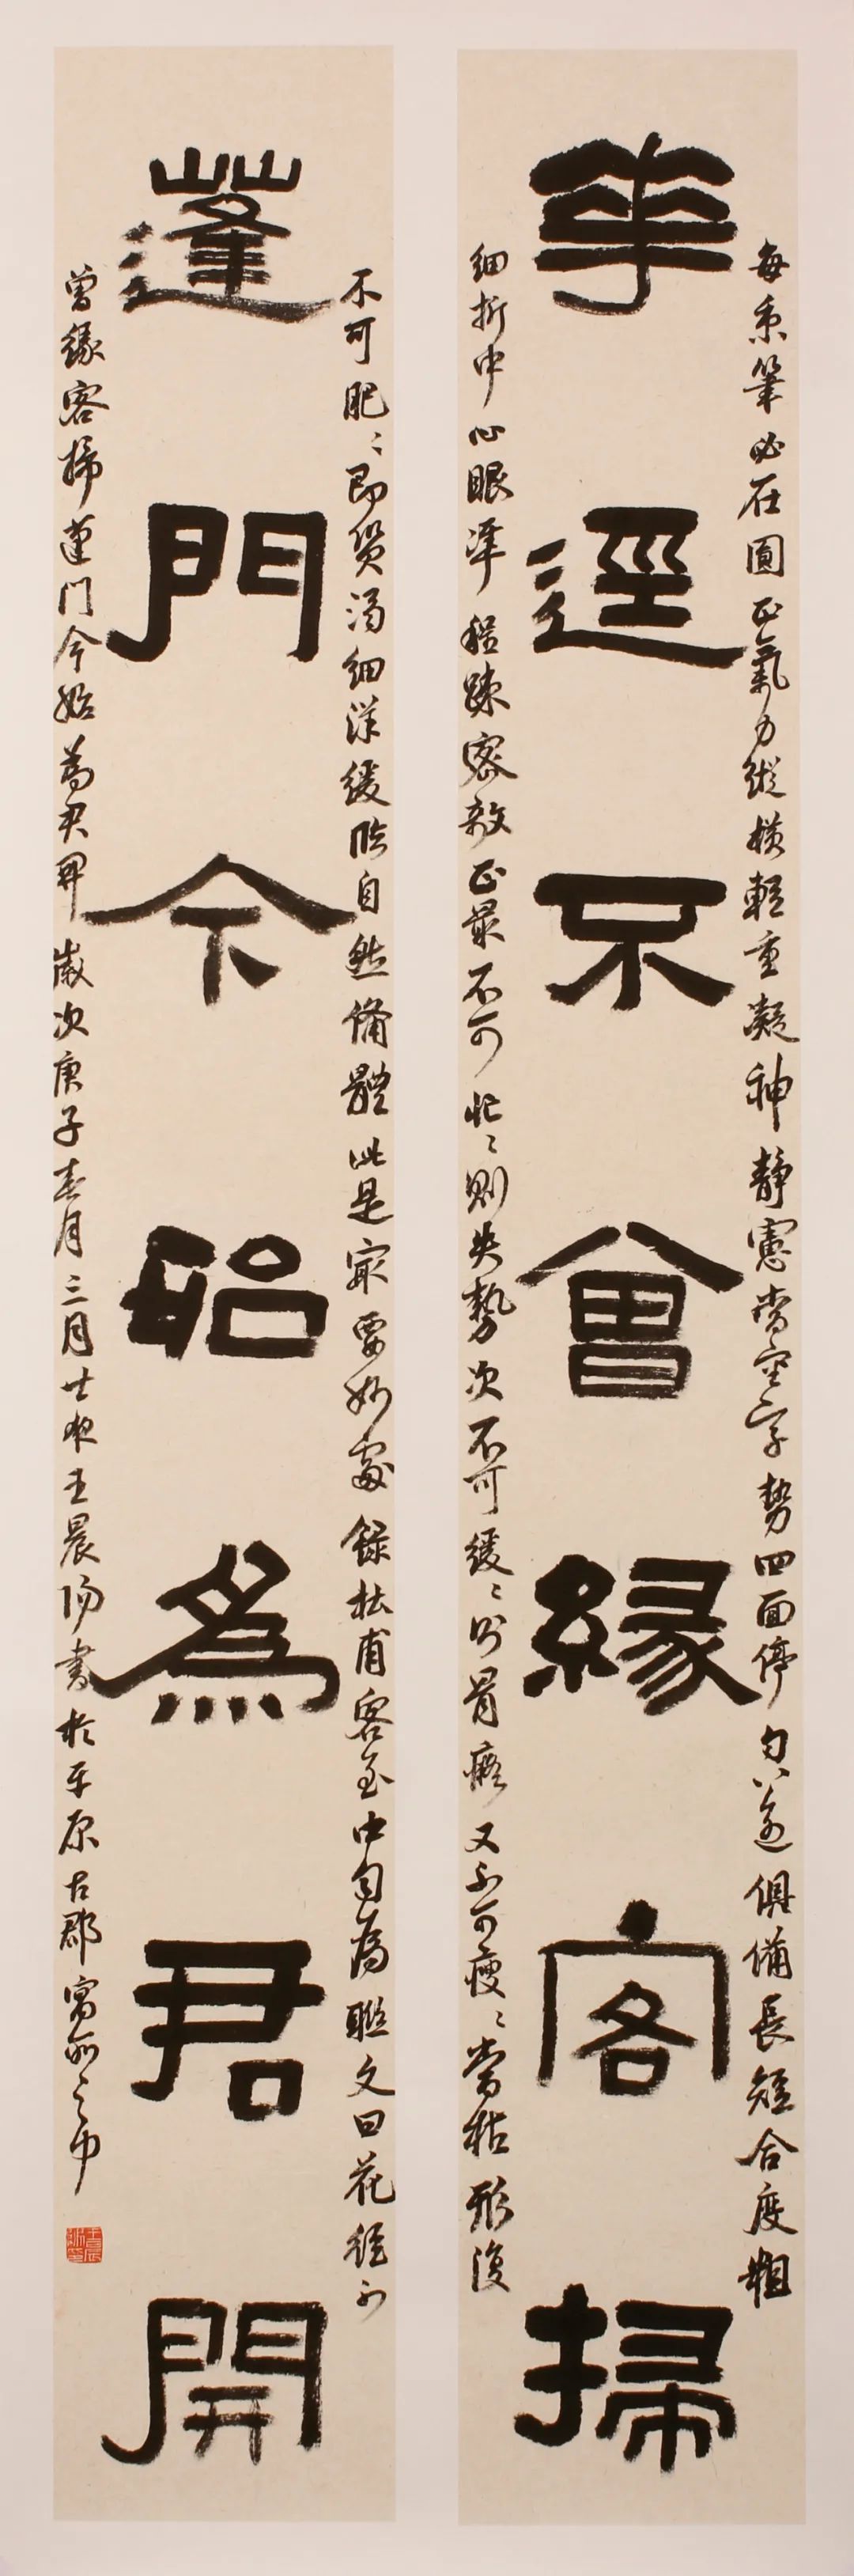 每秉筆必在圓正氣力縱橫輕重凝神靜慮當審字勢四面停勻八邊俱備長短合度粗
華逕不曾緣客掃
細折中心眼準程疎密欹正最不可忙〻則失勢次不可緩〻則骨癡又不可瘦〻當枯形復
不可肥〻即質濁細詳緩臨自然備體此是㝡要妙處錄杜甫客至中句為聯文曰花徑不
蓬門今始為君開
曾緣客掃蓬門今始為君開歲次庚子春月三月廿夜王晨陽書於平原古郡寓所之中